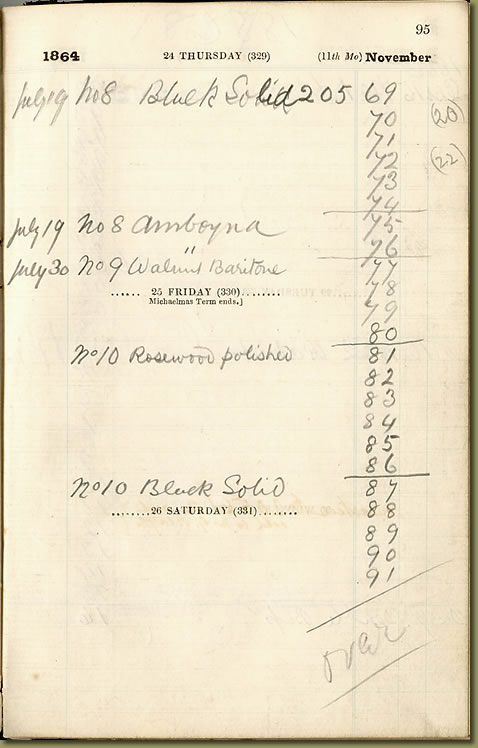 95
1864 24 THURSDAY (329) (11th Mo) November
July 19 No 8 Black Solid 205 69
70 (20)
71
72 (22)
73
74
July 19 No 8 Amboyna 75
76
July 30 No 9 Walnut " Baritone 77
...... 25 FRIDAY (330)........ 78
Michaelmas Term ends.] 79
80
No 10 Rosewood polished 81
82
83
84
85
86
No 10 Black Solid 87
........26 SATURDAY (331)........ 88
89
90
91
over